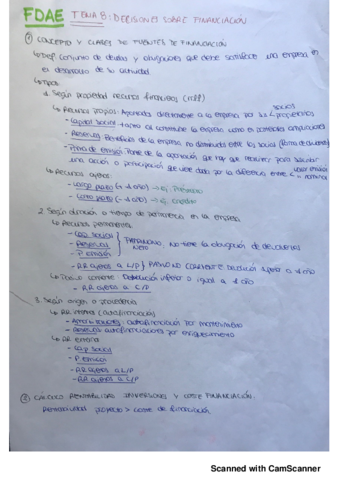 FDAE TEMA 8: DECISIONES SOBRE FINANCIACIÓN
① CONCEPTO Y CLASES DE FUENTES DE FINANCIACIÓN
Def. conjunto de deudas y obligaciones que debe satisfacer una empresa en
el desarrollo de su actividad
Tipos
1. Según propiedad recursos financieros
Recursos propios: Aportados directamente a la empresa por los socios propietarios
- Capital social
- Reservas: Beneficios de la empresa no distribuidos entre los socios
- Prima de emisión: Parte de la aportación que hay que
una acción o participación que viene dada por la diferencia entre
Recursos ajenos:
- Largo plazo (+1 año) → ej. Préstamo
- Corto plazo (-1 año) → ej.
2. Según duración o tiempo de permanencia en la empresa
Recursos permanentes
- Cap social
- Reservas
- P. emisión
PATRIMONIO NETO, No tiene la obligación de devolverlos
- RR ajenos a L/P } PASIVO NO CORRIENTE Devolución superior a 1 año
Pasivo corriente: Devolución inferior o igual a 1 año
- RR ajenos a C/P
3. Según origen o procedencia
RR internos (autofinanciación)
- Amortizaciones: autofinanciación por mantenimiento
- Reservas: autofinanciaciones por enriquecimiento
RR externos
- Cap social
- P. emisión
- RR ajenos a L/P
- RR ajenos a C/P
② CÁLCULO RENTABILIDAD INVERSIONES Y COSTE FINANCIACIÓN
Rentabilidad proyecto > coste de financiación
Scanned with CamScanner